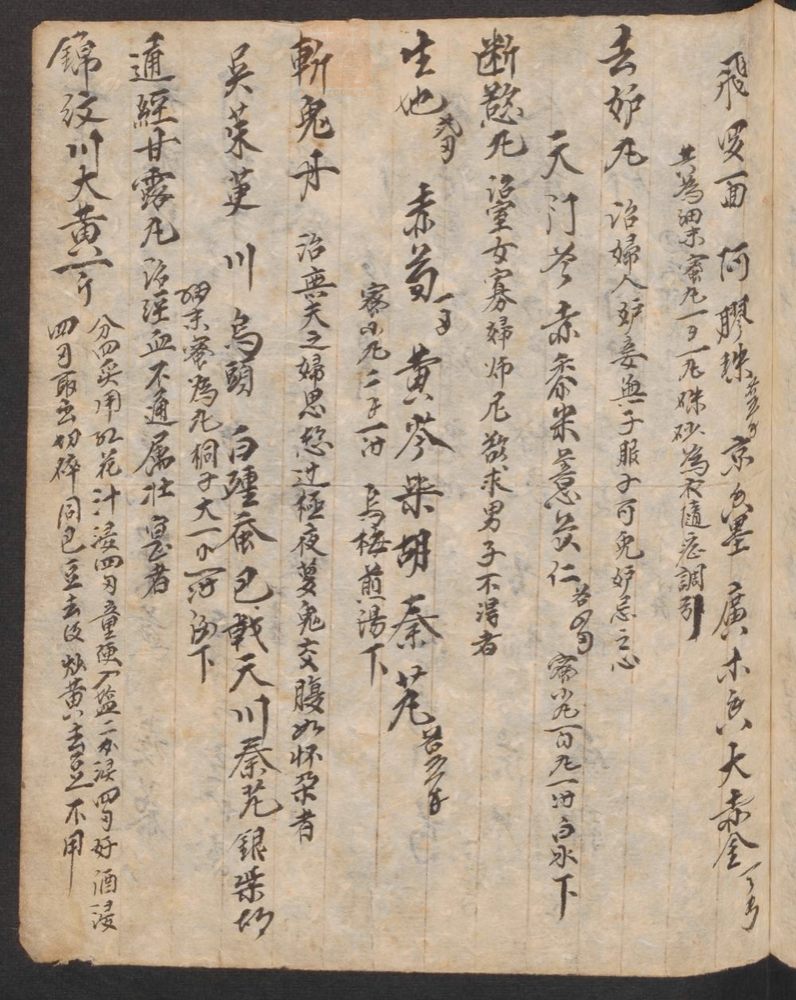 飛罗面 阿膠珠 京香墨 廣木香 大赤金
共為細末蜜丸一刄一丸硃砂為衣隨症調引
去妒丸 治婦人妒妾無子服了可免妒忌之心
天門冬 赤黍米 薏苡仁 各四刄 蜜小丸一百丸一付白水下
断慾丸 治室女寡婦师尼欲求男子不得者
生地 赤苟 黄芩 柴胡 秦艽
蜜小丸二 一付 烏梅煎湯下
斬鬼丹 治無夫之婦思慾过極夜夢鬼交腹如怀孕者
吴茱萸 川烏頭 白殭蚕 巴戟天 川秦艽 銀柴胡
細末蜜為丸桐子大一 一付酒下
通經甘露丸 治经血不通属壮寔者
錦紋川大黄一斤
分四分用红花汁浸四刄童便入盐二分浸四刄好酒浸
四刄取出切碎同巴豆去皮炒黄去豆不用